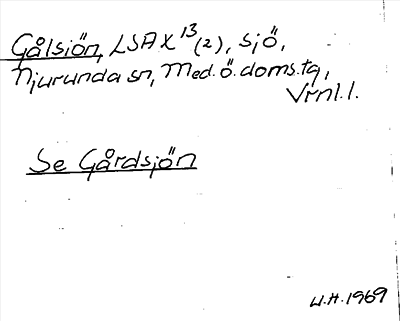 Gålsjön, LSA X 13 (2), sjö,
Njurunda sn, Med. ö. doms. tg,
Vrnl. l.
Se Gårdsjön
W.H. 1969